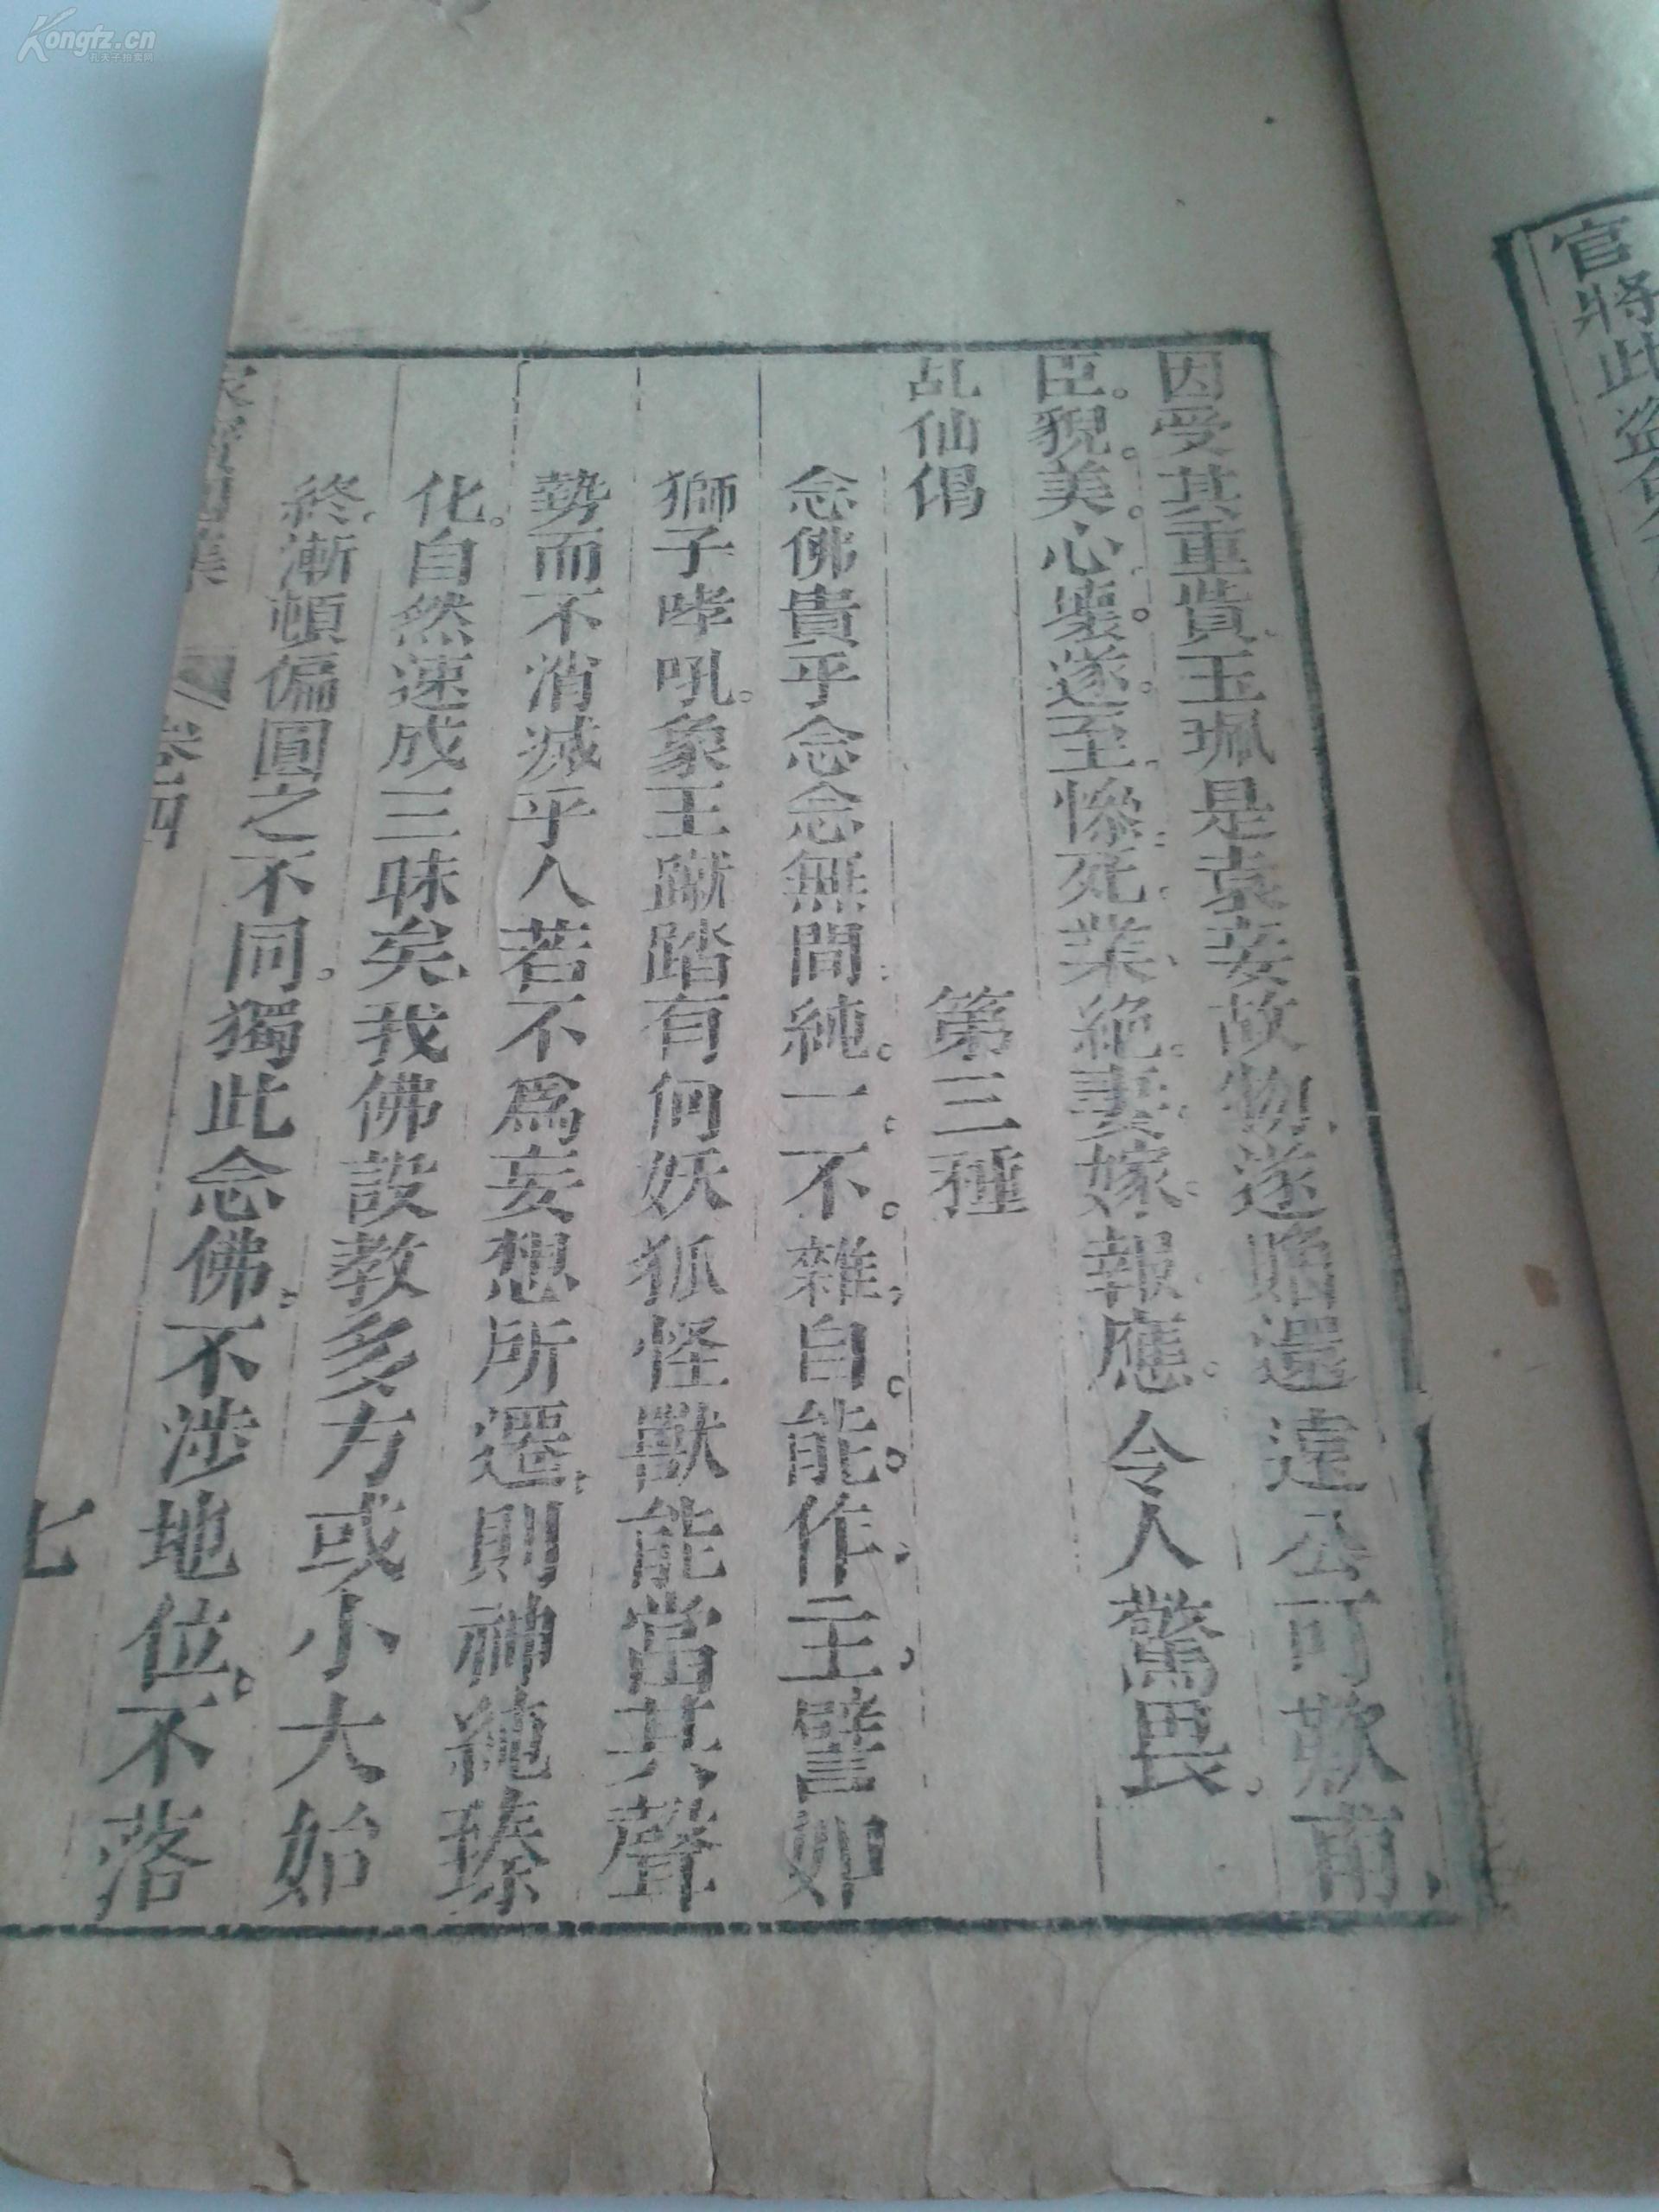 官將此盜
因受其重貲玉珮是袁妾故物遂贈還遠公可歎甫
臣貌美心壞遂至慘死業絶妻嫁報應令人驚畏
乩仙偈
第三種
念佛貴乎念念無間純一不雜自能作主譬如
獅子哮吼象王蹴踏有何妖狐怪獸能當其聲
勢而不消滅乎人若不爲妄想所遷則神純臻
化自然速成三昧矣我佛設教多方或小大始
終漸頓偏圓之不同獨此念佛不涉地位不落
卷四
七
Kongfz.cn
孔夫子拍卖网